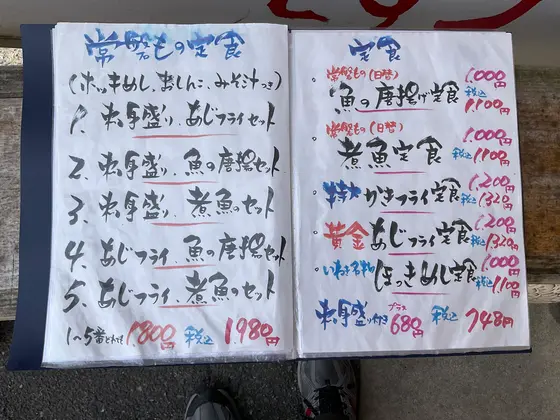 常磐もの定食
(ホッキめし、おしんこ、みそ汁つき)
1. 刺身盛り、あじフライセット
2. 刺身盛り、魚の唐揚セット
3. 刺身盛り、煮魚のセット
4. あじフライ、魚の唐揚セット
5. あじフライ、煮魚のセット
1〜5番どれでも 1.800円 税込 1.980円
定食
常磐もの(日替) 1.000円
魚の唐揚げ定食 税込 1.100円
常磐もの(日替) 1.000円
煮魚定食 税込 1.100円
特大かきフライ定食 1.200円 税込 1.320円
黄金あじフライ定食 1.200円 税込 1.320円
いわき名物 ほっきめし定食 1.000円 税込 1.100円
刺身盛り付き プラス 680円 税込 748円